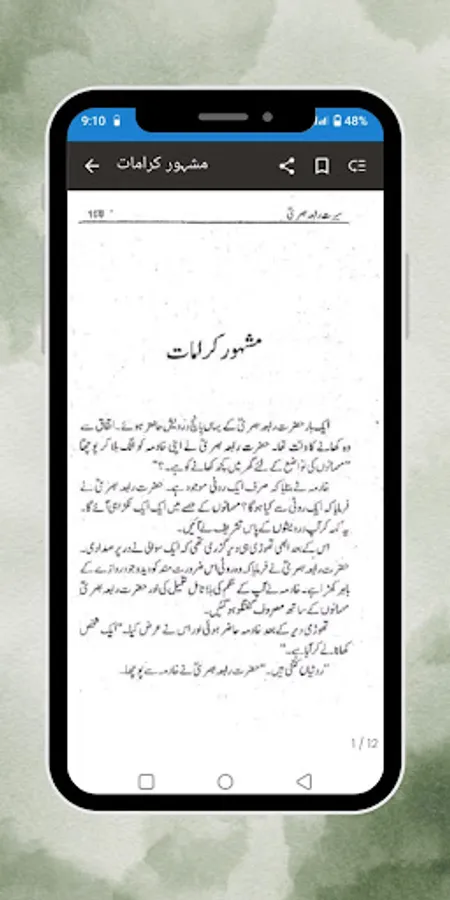 9:10
48%
مشہور کرامات
سیرت رابعہ بصریؒ
مشہور کرامات
ایک بار حضرت رابعہ بصریؒ کے یہاں پانچ درویش حاضر ہوئے۔ اتفاق سے
وہ کھانے کا وقت تھا۔ حضرت رابعہ بصریؒ نے اپنی خادمہ کو الگ بلا کر پوچھا
"مہمانوں کی تواضع کے لئے گھر میں کچھ کھانے کو ہے۔؟"
خادمہ نے بتایا کہ صرف ایک روٹی موجود ہے۔ حضرت رابعہ بصریؒ نے
فرمایا کہ ایک روٹی سے کیا ہو گا؟ مہمانوں کے حصے میں ایک ایک ٹکڑا ہی آئے گا۔
یہ کہہ کر آپ درویشوں کے پاس تشریف لے آئیں۔
اس کے بعد ابھی تھوڑی ہی دیر گزری تھی کہ ایک سوالی نے در پر صدا دی۔
حضرت رابعہ بصریؒ نے فرمایا کہ وہ روٹی اس ضرورت مند کو دیدو جو دروازے کے
باہر کھڑا ہے۔ خادمہ نے آپ کے حکم کی بلا تامل تعمیل کی اور حضرت رابعہ بصریؒ
مہمانوں کے ساتھ مصروف گفتگو ہو گئیں۔
تھوڑی دیر کے بعد خادمہ حاضر ہوئی اور اس نے عرض کیا۔ "ایک شخص
کھانا لے کر آیا ہے۔"
"روٹیاں کتنی ہیں۔" حضرت رابعہ بصریؒ نے خادمہ سے پوچھا۔
1 / 12